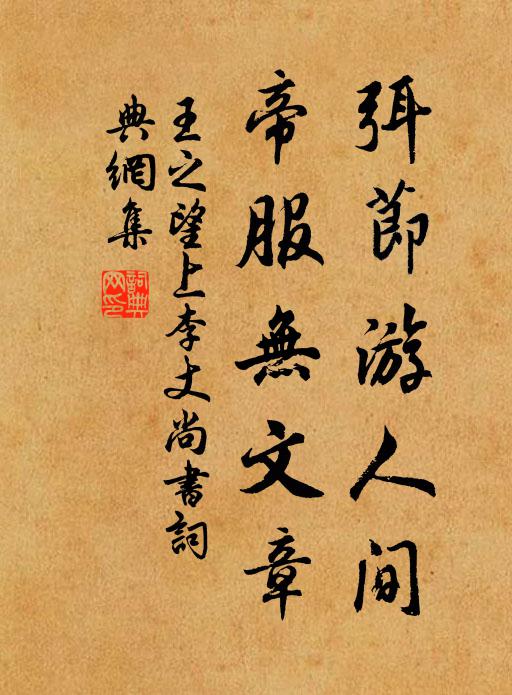 弭節游人间
帝服無文章
王之望上李丈尚書詞
典網集
詞典网印